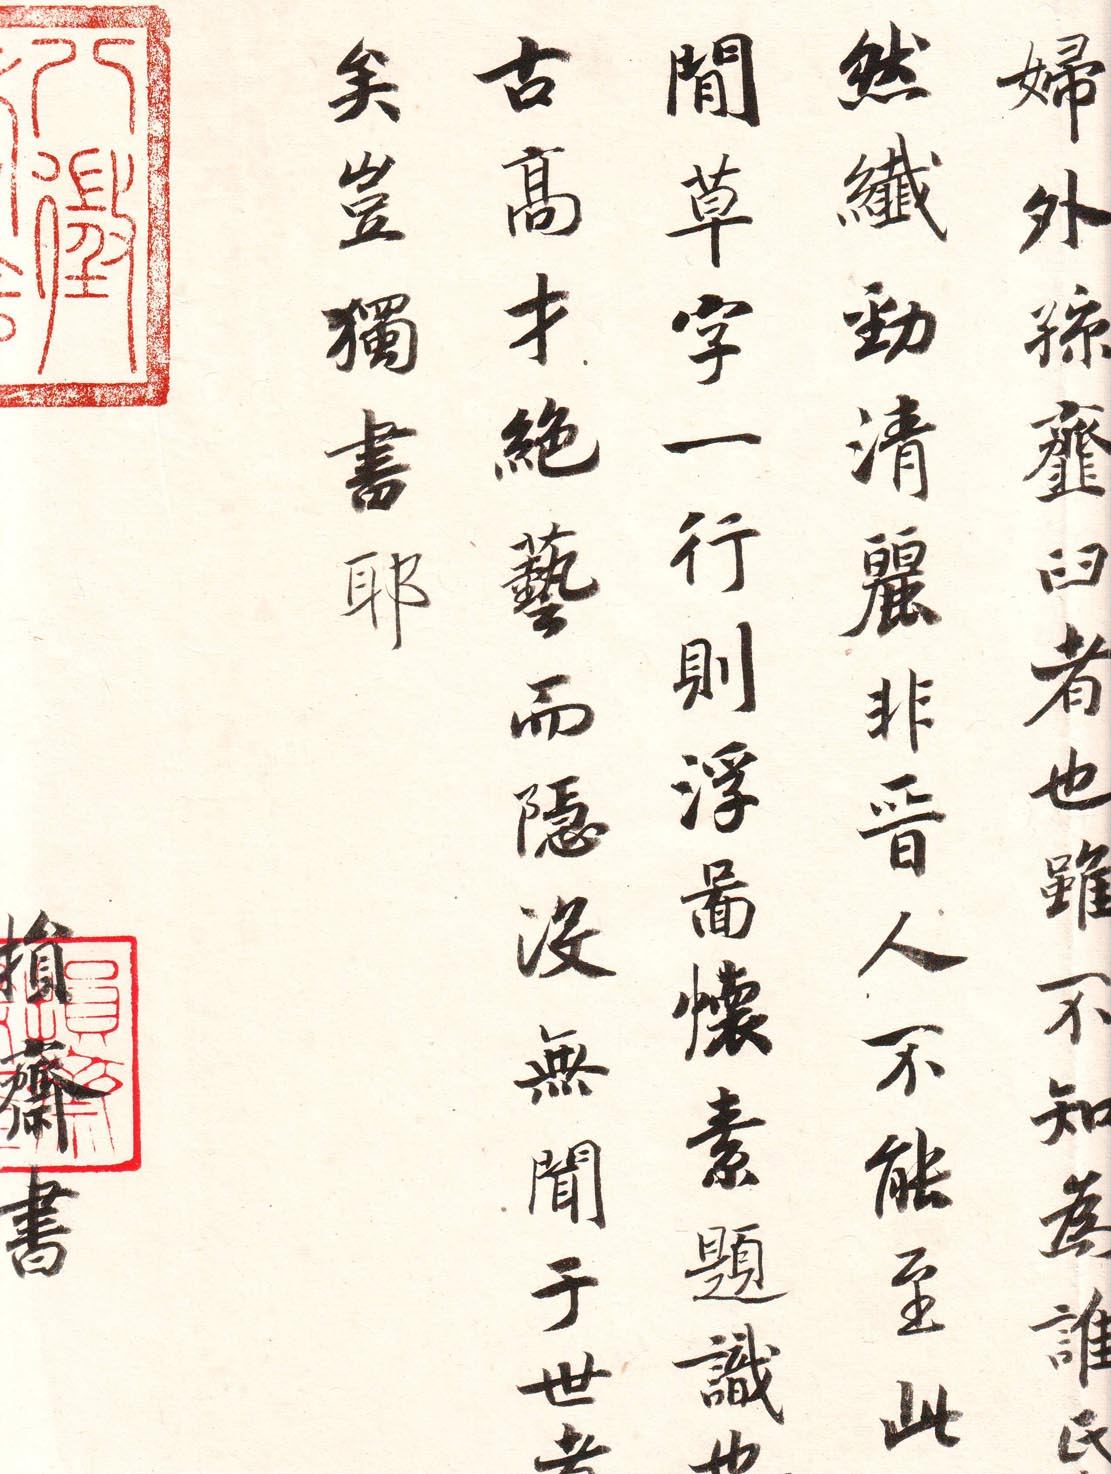 婦外孫虀臼者也雖不知為誰氏
然纖勁清麗非晉人不能至此
間草字一行則浮啚懷素題識也
古高才絕藝而隱没無聞于世者
矣豈獨書耶
損齋書